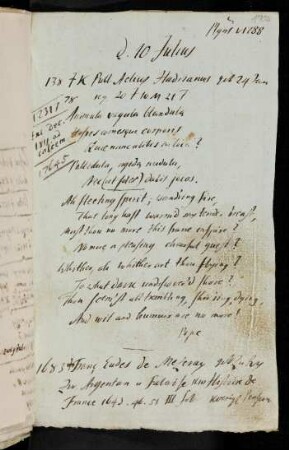 D. 10 Julius
138 † K Publ Aelius Hadrianus geb 24 Jan
Animula vagula blandula
Hospes comesque corporis
Quae nunc abibis in loca?
Pallidula, rigida, nudula,
Nec (ut soles) dabis jocos.
Ah fleeting Spirit; wand'ring Fire,
That long hast warm'd my tender breast,
Must thou no more this frame inspire?
No more a pleasing chearful guest?
Whither, ah whither art thou flying?
To what dark undiscover'd shore?
Thou seem'st all trembling, shiv'ring, dying,
And wit and humour are no more!
Pope
1683 † Franz Eudes de Mezeray geb
Argentan u Falaise Histoire de
France 1643. III